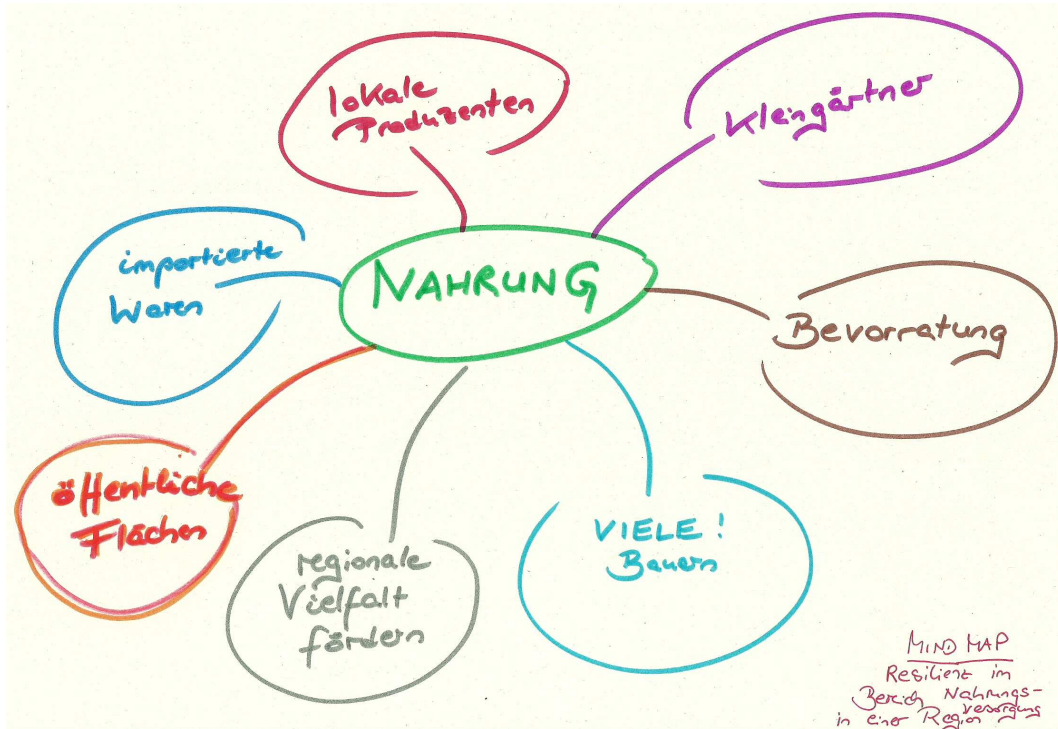 lokale
Produzenten
Kleingärtner
importierte
Waren
NAHRUNG
Bevorratung
öffentliche
Flächen
regionale
Vielfalt
fördern
VIELE !
Bauern
MIND MAP
Resilienz im
Bereich Nahrungs-
versorgung
in einer Region